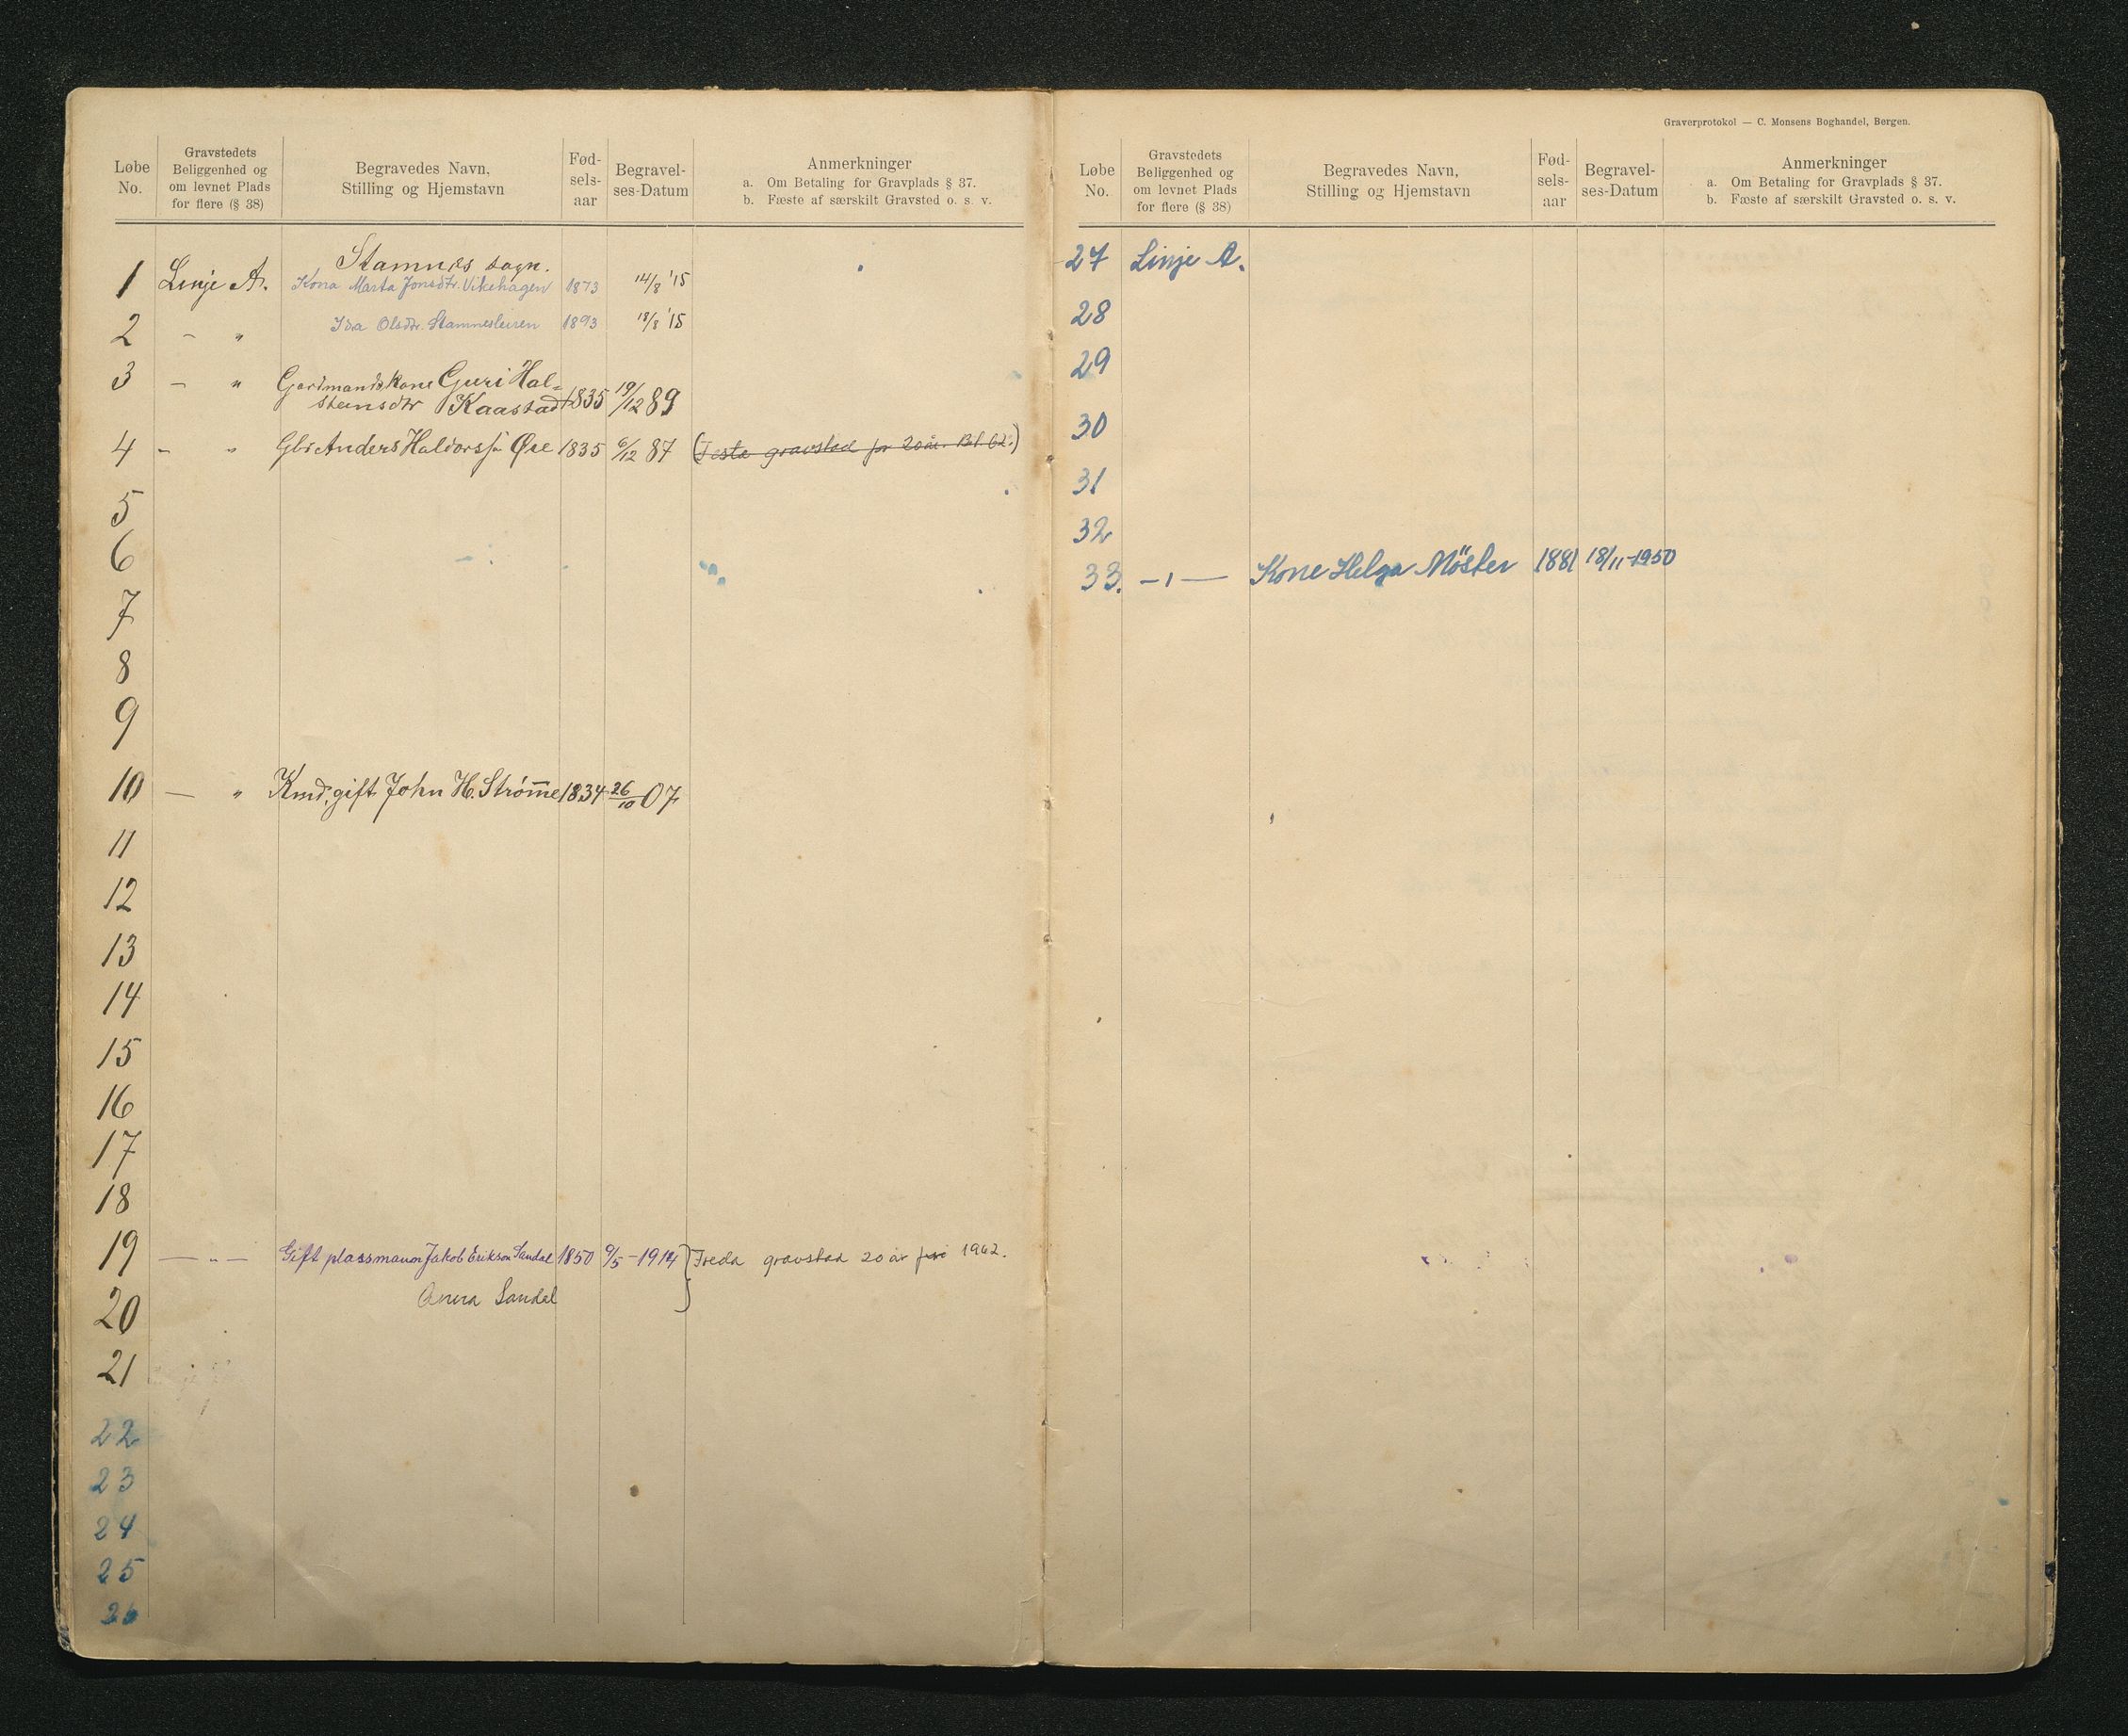 Løbe No.
Gravstedets Beliggenhed og om levnet Plads for flere (§ 38)
Begravedes Navn, Stilling og Hjemstavn
Fød-sels-aar
Begravel-ses-Datum
Anmerkninger
a. Om Betaling for Gravplads § 37.
b. Fæste af særskilt Gravsted o. s. v.
Stamnes sogn.
1 Linje A. Kona Marta Jonsdtr. Vikehagen 1873 14/8 '15
2 - " Ida Olsdtr. Stamnesleiren 1893 18/8 '15
3 - " Gardmandskone Guri Hal=
steinsdtr Kaastad 1835 19/12 89
4 - " Gbr Anders Haldorss. Øse 1835 6/12 87 (Festa gravstad for 20 år. Bet. 62.)
5
6
7
8
9
10 — " Kmd. gift John H. Strøm̅e 1834 26/10 07
11
12
13
14
15
16
17
18
19 — " — Gift plassmann Jakob Erikson Sandal 1850 9/5 - 1914 } Freda gravstad 20 år 1962.
Anna Sandal
20
21
22
23
24
25
26
Graverprotokol — C. Monsens Boghandel, Bergen.
Løbe No.
Gravstedets Beliggenhed og om levnet Plads for flere (§ 38)
Begravedes Navn, Stilling og Hjemstavn
Fød-sels-aar
Begravel-ses-Datum
Anmerkninger
a. Om Betaling for Gravplads § 37.
b. Fæste af særskilt Gravsted o. s. v.
27 Linje A.
28
29
30
31
32
33. -ı- Kone Helga Möster 1881 18/11-1950